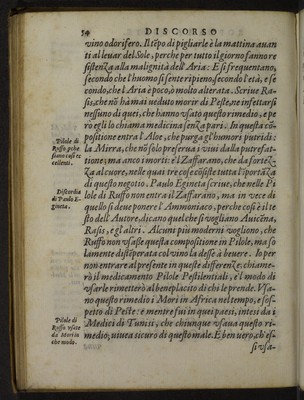 54 DISCORSO
vino odorifero. Il tẽpo di pigliarle è la mattina auan
ti al leuar del Sole, perche per tutto il giorno fanno re
sistenza alla malignità dell'Aria: E si frequentano,
secondo che l'huomo si sente ripieno, secondo l'età, e se
condo, che l'Aria è poco, ò molto alterata. Scriue Ra-
sis, che nõ hà mai ueduto morir di Peste, ne infettarsi
nessuno di quei, che hanno vsato questo rimedio, e pe
rò egli lo chiama medicina senza pari. In questa cõ-
Pilole di Ruffo per che siano cosi eccellenti.
positione entra l'Aloe, che purga gl'humori putridi:
la Mirra, che nõ solo preserua i viui dalla putrefat-
tione, ma anco i morti: è'l Zaffarano, che da fortez-
za al cuore, nelle quai tre cose cõsiste tutta l'ĩportãza
di questo negotio. Paulo Egineta scriue, che nelle Pi
Discordia di Paulo Egineta.
lole di Ruffo non entra il Zaffarano, ma in vece di
quello si deue ponere l'Ammoniaco, perche cosi è il te
sto dell'Autore, dicano quel che si vogliano Auicẽna,
Rasis, e gl'altri. Alcuni più moderni vogliono, che
Ruffo non vsasse questa compositione in Pilole, ma so
lamente distẽperata col vino la desse à beuere. Io per
non entrare al presente in queste differenze, chiame-
rò il medicamento Pilole Pestilentiali, e'l modo di
vsarle rimetterò al beneplacito di chi le prende. Vsa-
Pilole di Ruffo vsate da Mori in che modo.
no questo rimedio i Mori in Africa nel tempo, e sos-
petto di Peste: è mentre fui in quei paesi, intesi da i
Medici di Tunisi, che chiunque vsaua questo ri-
medio, uiuea sicurò di questo male. E ben uero, ch'es-
si vsa-